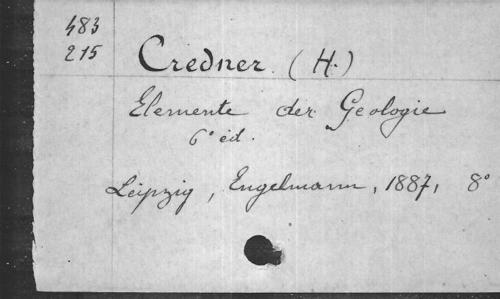 483
215
Credner (H.)
Elemente der Geologie
6° éd.
Leipzig, Engelmann, 1887, 8°